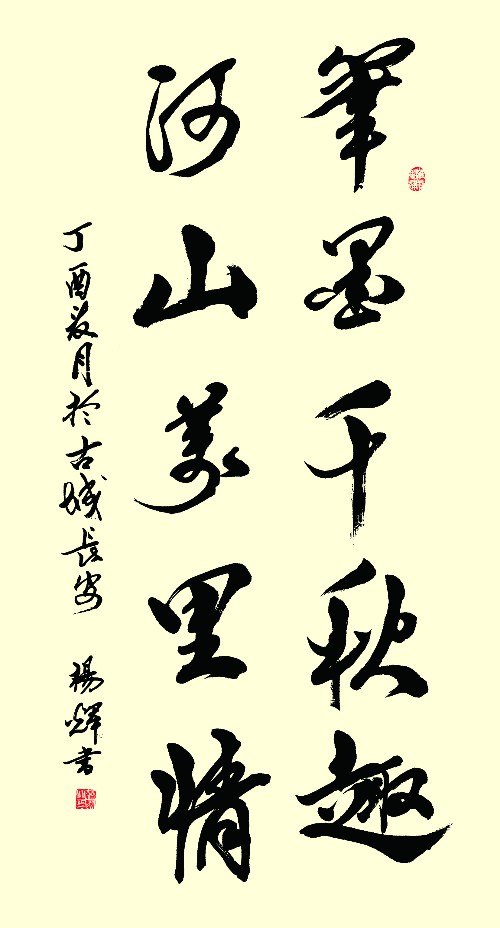 筆墨千秋趣
河山萬里情
丁酉荷月於古城長安
楊輝書